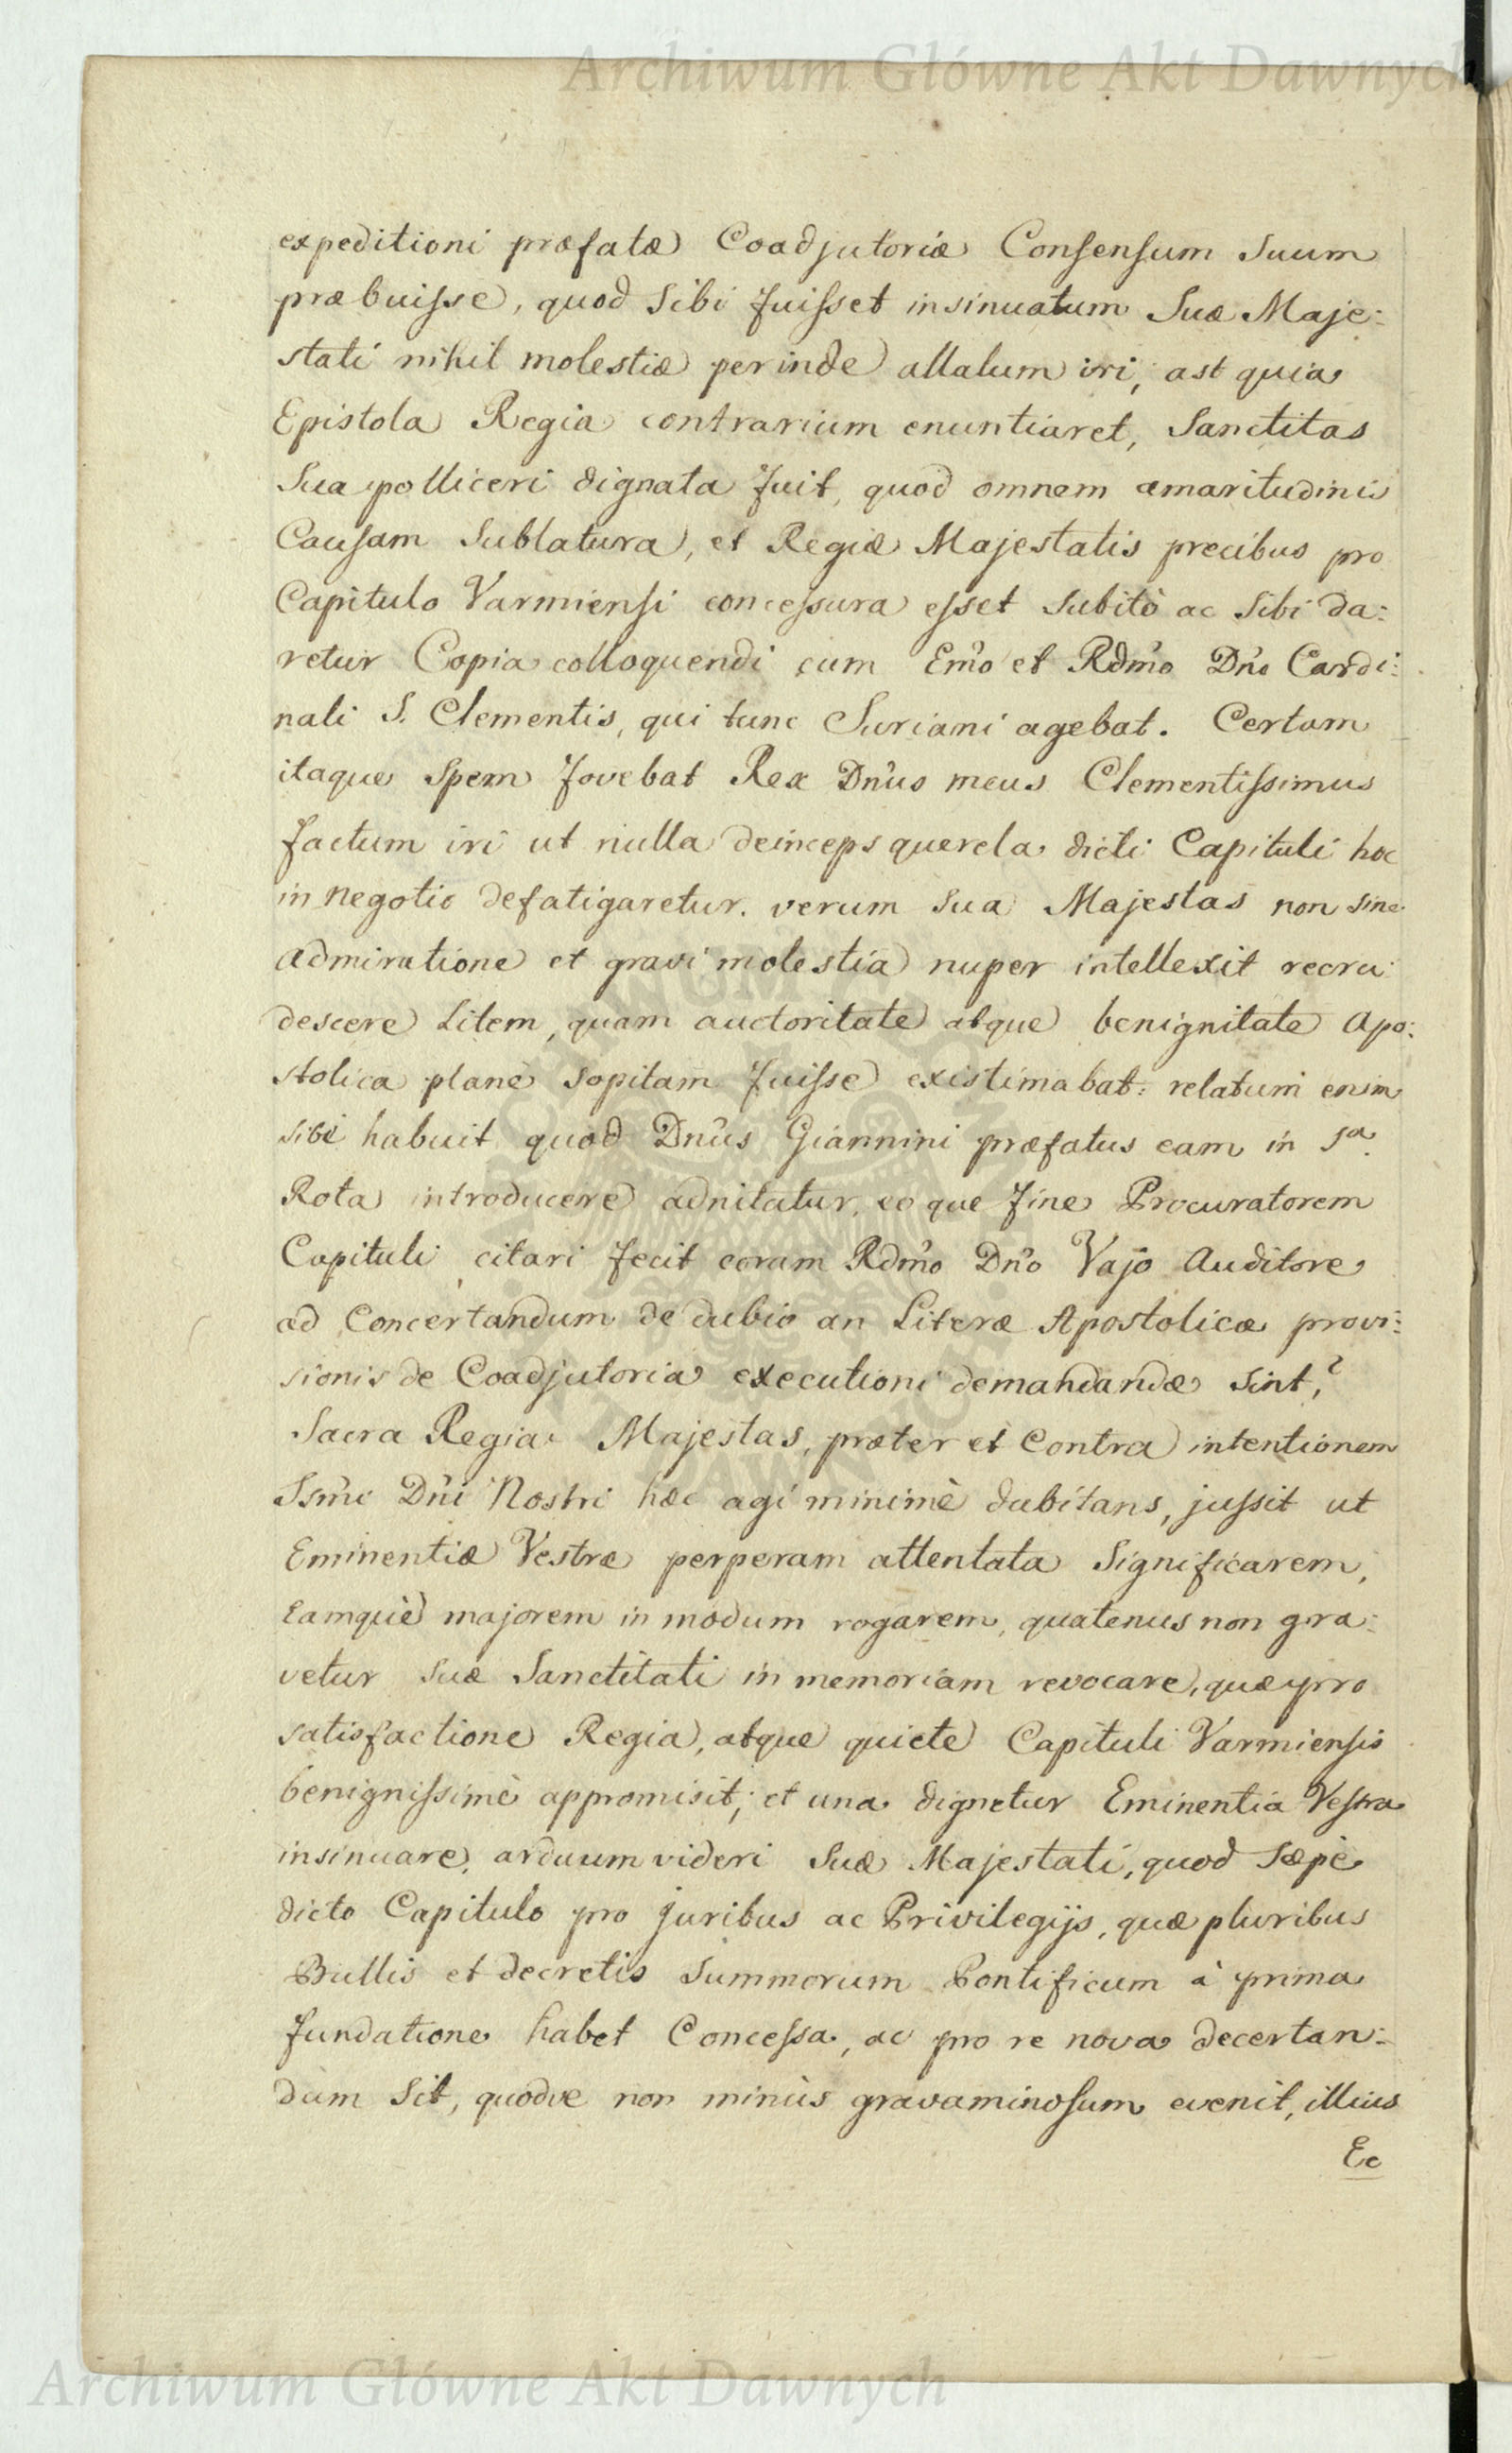 Archiwum Główne Akt Dawnych
expeditioni præfatæ Coadjutoriæ Consensum Suum
præbuisse, quod Sibi fuisset insinuatum Suæ Maje:
stati nihil molestiæ perinde allatum iri, ast quia
Epistola Regia contrarium enuntiaret, Sanctitas
Sua polliceri dignata fuit, quod omnem amaritudinis
Causam Sublatura, et Regiæ Majestatis precibus pro
Capitulo Varmiensi concessura esset Subitò ac Sibi da:
retur Copia colloquendi cum Emo et Rdmo Dno Cardi:
nali S. Clementis, qui tunc Suriani agebat. Certam
itaque Spem fovebat Rex Dnus meus Clementissimus
factum iri ut nulla deinceps querela dicti Capituli hoc
in negotio defatigaretur. verum Sua Majestas non sine
admiratione et gravi molestia nuper intellexit recru:
descere Litem, quam auctoritate atque benignitate Apo:
stolica planè Sopitam fuisse existimabat: relatum enim
sibi habuit quod Dnus Giannini præfatus eam in Sa.
Rota introducere adnitatur, eo que fine Procuratorem
Capituli citari fecit coram Rdmo Dno Vajo Auditore
ad Concertandum de dubio an Literæ Apostolicæ provi:
sionis de Coadjutoria executioni demandandæ Sint,?
Sacra Regia Majestas, præter et Contra intentionem
Ssmi Dni Nostri hæc agi minimè dubitans, jussit ut
Eminentiæ Vestræ perperam attentata Significarem,
Eamquè majorem in modum rogarem, quatenus non gra:
vetur Suæ Sanctitati in memoriam revocare, quæ pro
satisfactione Regia, atque quiete Capituli Varmiensis
benignissimè appromisit; et una dignetur Eminentia Vestra
insinuare, arduum videri Suæ Majestati, quod Sæpè
dicto Capitulo pro juribus ac Privilegijs, quæ pluribus
Bullis et decretis Summorum Pontificum à prima
fundatione habet Concessa, ac pro re nova decertan:
dum Sit, quodve non minùs gravaminosum evenit, illius
Ec
Archiwum Główne Akt Dawnych